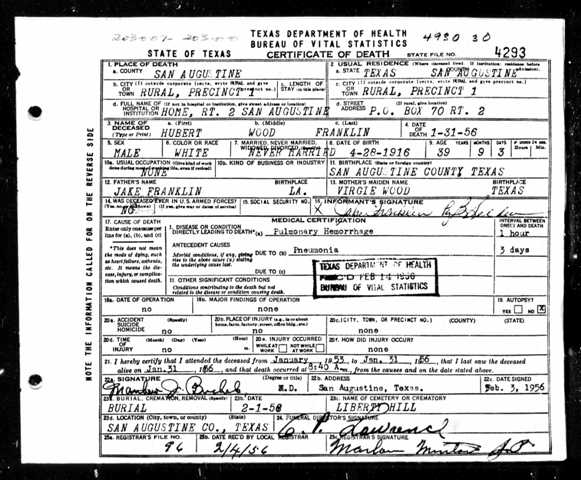 TEXAS DEPARTMENT OF HEALTH
BUREAU OF VITAL STATISTICS
STATE OF TEXAS
CERTIFICATE OF DEATH
STATE FILE NO. 4293
1. PLACE OF DEATH
a. COUNTY
SAN AUGUSTINE
2. USUAL RESIDENCE
a. STATE TEXAS
SAN AUGUSTINE
OR TOWN RURAL, PRECINCT
c. LENGTH OF STAY
OR TOWN RURAL, PRECINCT 1
d. FULL NAME OF HOSPITAL OR INSTITUTION HOME, RT. 2 SAN AUGUSTINE
d. STREET ADDRESS P.O. BOX 70 RT. 2
3. NAME OF DECEASED (Type or Print)
a. (First) HUBERT
b. (Middle) WOOD
c. (Last) FRANKLIN
4. DATE OF DEATH 1-31-56
5. SEX MALE
6. COLOR OR RACE WHITE
7. MARRIED, NEVER MARRIED, WIDOWED, DIVORCED NEVER MARRIED
8. DATE OF BIRTH 4-28-1916
9. AGE 39 9 3
10a. USUAL OCCUPATION NONE
10b. KIND OF BUSINESS OR INDUSTRY
11. BIRTHPLACE (State or foreign country)
SAN AUGUSTINE COUNTY TEXAS
12. FATHER'S NAME JAKE FRANKLIN
BIRTHPLACE LA.
13. MOTHER'S MAIDEN NAME VIRGIE WOOD
BIRTHPLACE TEXAS
14. WAS DECEASED EVER IN U.S. ARMED FORCES? NO
15. SOCIAL SECURITY NO.
16. INFORMANT'S SIGNATURE
17. CAUSE OF DEATH
Enter only one cause per line for (a), (b), and (c)
MEDICAL CERTIFICATION
INTERVAL BETWEEN ONSET AND DEATH
I. DISEASE OR CONDITION DIRECTLY LEADING TO DEATH* (a) Pulmonary Hemorrhage
1 hour
*This does not mean the mode of dying, such as heart failure, asthenia, etc. It means the disease, injury, or complication which caused death.
ANTECEDENT CAUSES
Morbid conditions, if any, giving rise to the above cause (a) stating the underlying cause last
DUE TO (b) Pneumonia
3 days
DUE TO (c)
TEXAS DEPARTMENT OF HEALTH
REC'D FEB 14 1956
BUREAU OF VITAL STATISTICS
II. OTHER SIGNIFICANT CONDITIONS
Conditions contributing to the death but not related to the disease or condition causing death.
18a. DATE OF OPERATION no
18b. MAJOR FINDINGS OF OPERATION none
19. AUTOPSY? YES NO X
20a. ACCIDENT SUICIDE HOMICIDE no
20b. PLACE OF INJURY no
20c. (CITY, TOWN, OR PRECINCT NO.) (COUNTY) (STATE)
none
20d. TIME OF INJURY (Month) (Day) (Year) (Hour) no
20e. INJURY OCCURRED WHILE AT WORK NOT WHILE AT WORK
20f. HOW DID INJURY OCCUR? none
21. I hereby certify that I attended the deceased from January, 1953 to Jan. 31, 1956, that I last saw the deceased
alive on Jan. 31, 1956, and that death occurred at 8:40 A m., from the causes and on the date stated above.
22a. SIGNATURE
(Degree or title) M.D.
22b. ADDRESS San Augustine, Texas.
22c. DATE SIGNED Feb. 3, 1956
23a. BURIAL, CREMATION, REMOVAL (Specify) BURIAL
23b. DATE 2-1-56
23c. NAME OF CEMETERY OR CREMATORY LIBERTY HILL
23d. LOCATION (City, town, or county) (State)
SAN AUGUSTINE CO., TEXAS
24. FUNERAL DIRECTOR'S SIGNATURE
Lawrence
25a. REGISTRAR'S FILE NO. 96
25b. DATE REC'D BY LOCAL REGISTRAR 2/4/56
25c. REGISTRAR'S SIGNATURE
NOTE THE INFORMATION CALLED FOR ON THE REVERSE SIDE